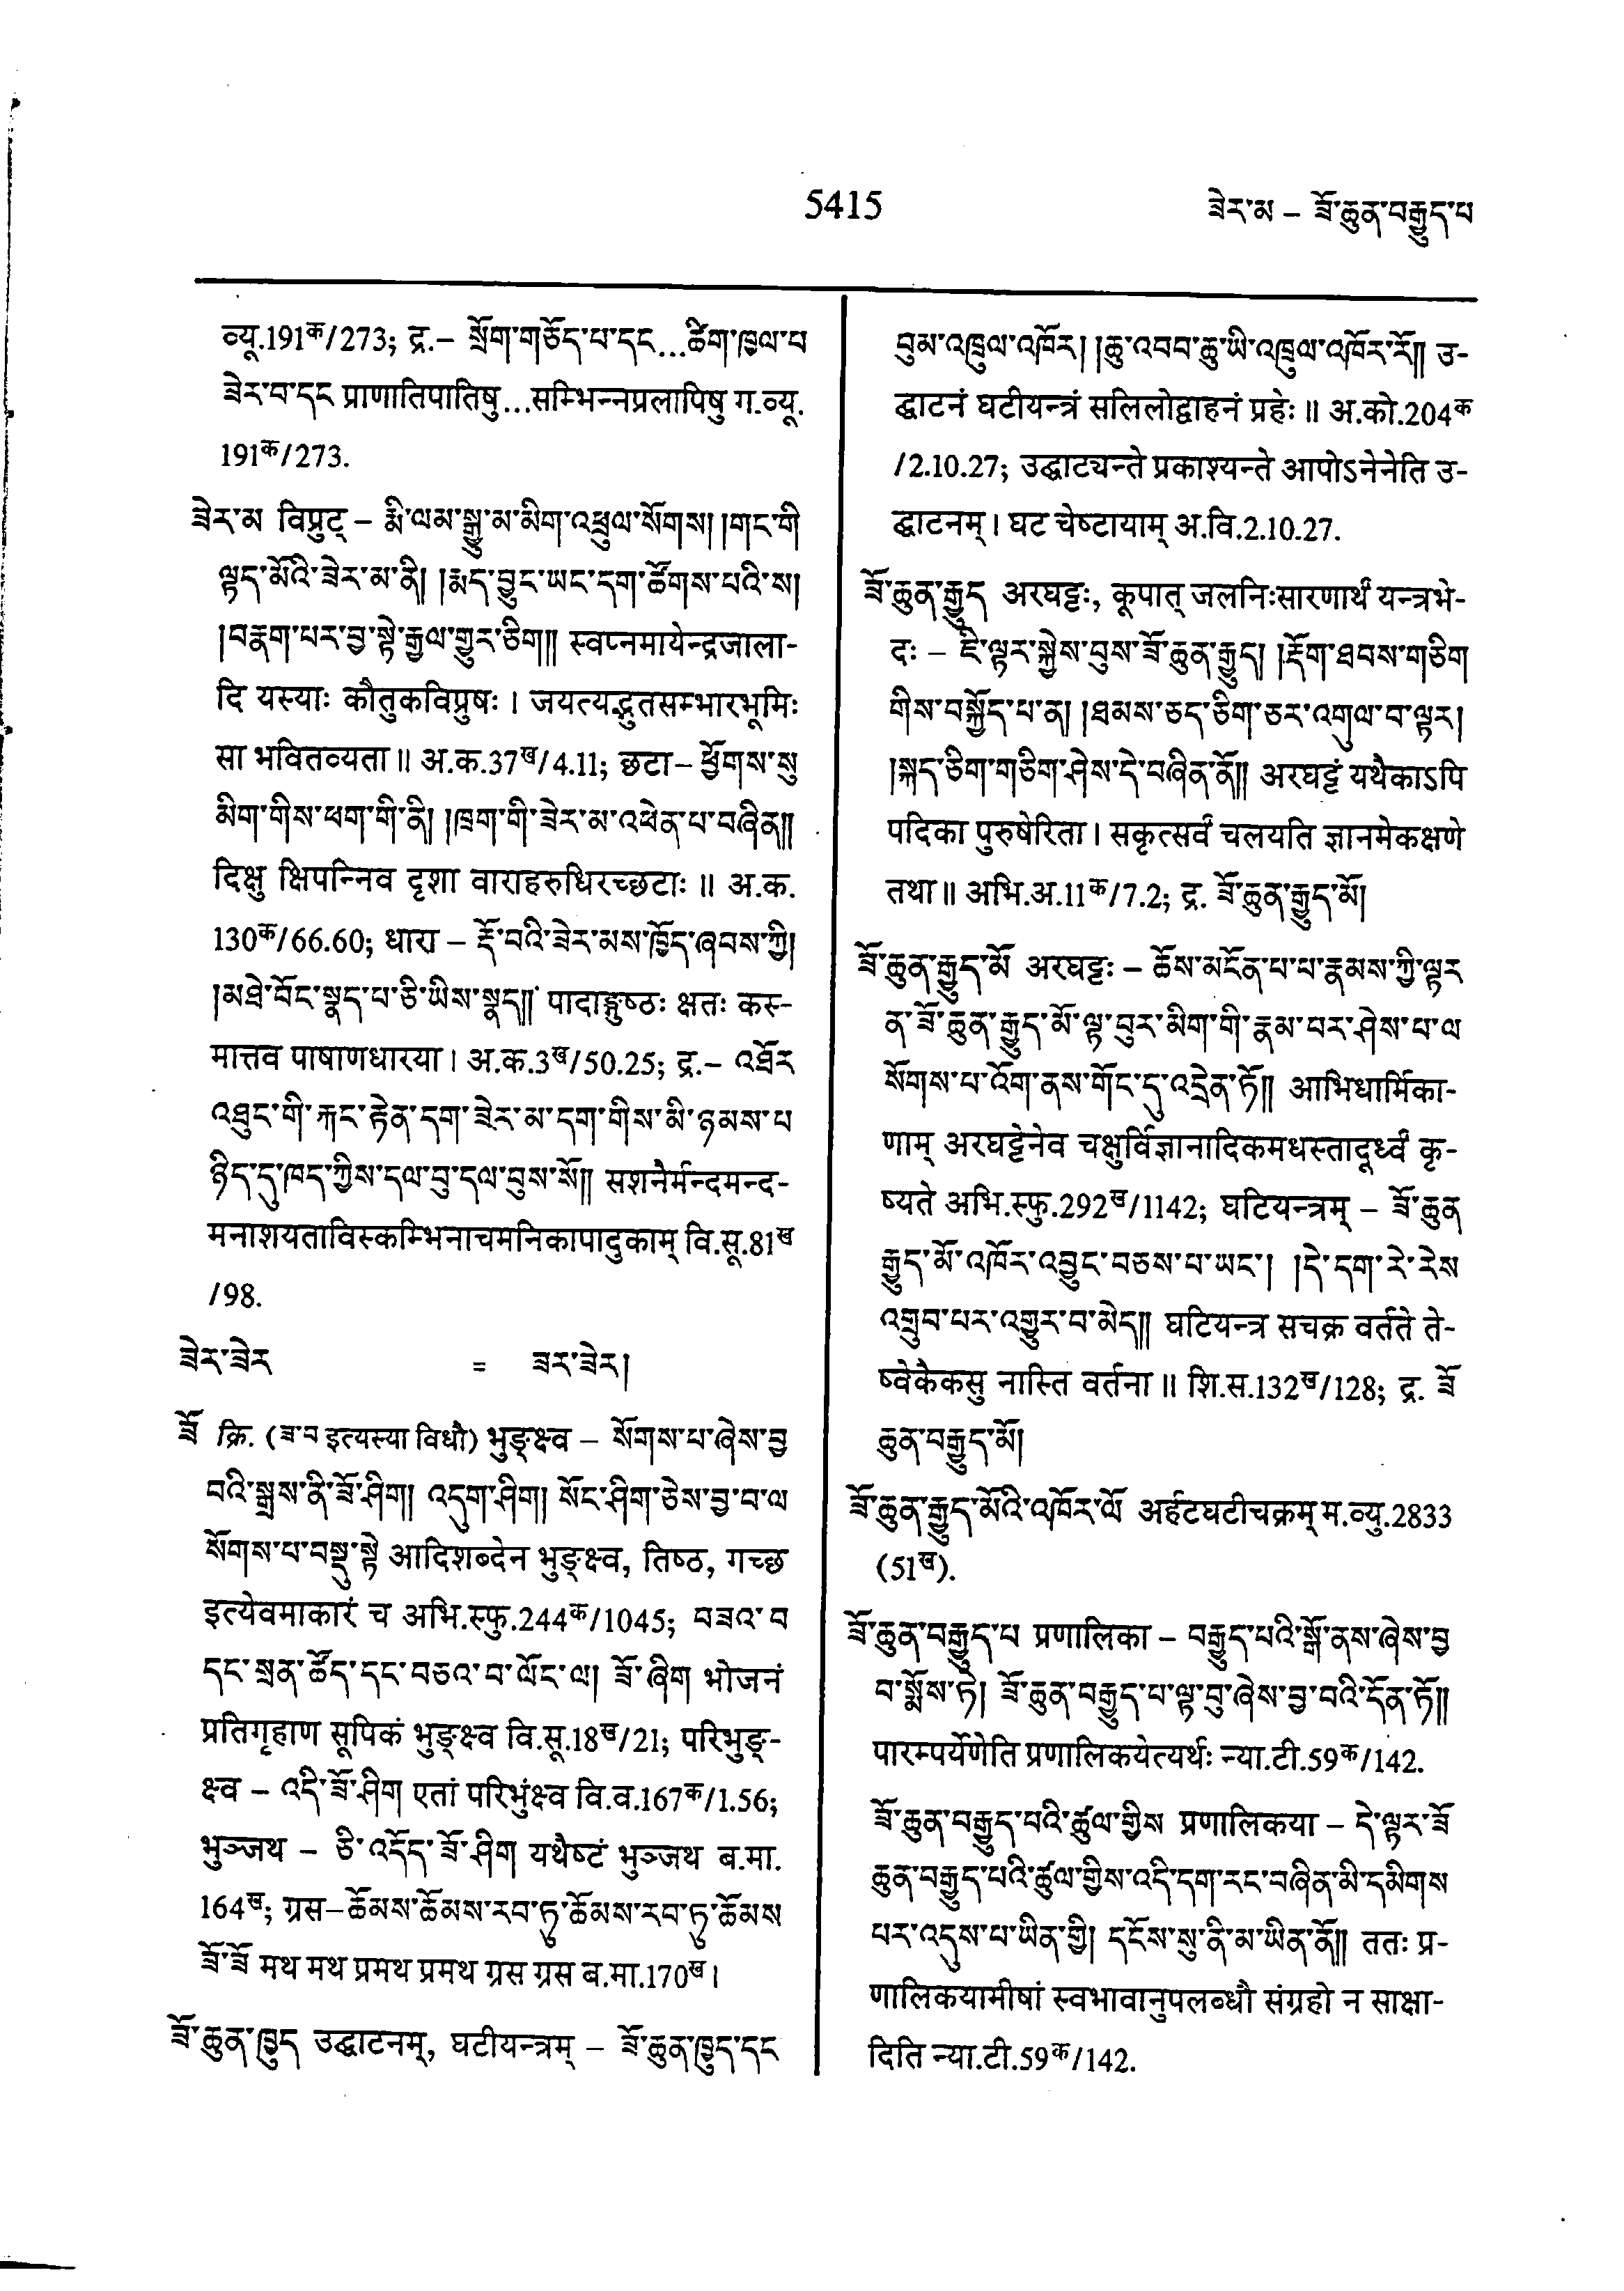 5415
ཟེར་མ – ཟོ་ཆུན་བརྒྱུད་པ
व्यू.191क/273; द्र.– སྲོག་གཅོད་པ་དང...ཚིག་ཁྱལ་བ
ཟེར་བ་དང प्राणातिपातिषु...सम्भिन्नप्रलापिषु ग.व्यू.
191क/273.
ཟེར་མ विप्रुट् – རྨི་ལམ་སྒྱུ་མ་མིག་འཕྲུལ་སོགས། །གང་གི
ལྟད་མོའི་ཟེར་མ་ནི། །རྨད་བྱུང་ཡང་དག་ཚོགས་པའི་ས།
།བརྟག་པར་བྱ་སྟེ་རྒྱལ་གྱུར་ཅིག།། स्वप्नमायेन्द्रजाला-
दि यस्याः कौतुकविप्रुषः । जयत्यद्भुतसम्भारभूमिः
सा भवितव्यता ॥ अ.क.37ख/4.11; छटा – ཕྱོགས་སུ
མིག་གིས་ཕག་གི་ནི། །ཁྲག་གི་ཟེར་མ་འཕེན་པ་བཞིན།།
दिक्षु क्षिपन्निव दृशा वाराहरुधिरच्छटाः ॥ अ.क.
130क/66.60; धारा – རྡོ་བའི་ཟེར་མས་ཁྱོད་ཞབས་ཀྱི།
།མཐེ་བོང་སྣད་པ་ཅི་ཡིས་སྣད།། पादाङ्गुष्ठः क्षतः कस्-
मात्तव पाषाणधारया । अ.क.3ख/50.25; द्र.– འཐོར
འཐུང་གི་རྐང་རྟེན་དག་ཟེར་མ་དག་གིས་མི་ཉམས་པ
ཉིད་དུ་ཁད་ཀྱིས་དལ་བུ་དལ་བུས་སོ།། सशनैर्मन्दमन्द-
मनाशयताविस्कम्भिनाचमनिकापादुकाम् वि.सू.81ख
/98.
ཟེར་ཟེར = ཟར་ཟེར།
ཟོ क्रि. (ཟ་བ इत्यस्या विधौ) भुङ्क्ष्व – སོགས་པ་ཞེས་བྱ
བའི་སྒྲས་ནི་ཟོ་ཤིག། འདུག་ཤིག། སོང་ཤིག་ཅེས་བྱ་བ་ལ
སོགས་པ་བསྡུ་སྟེ आदिशब्देन भुङ्क्ष्व, तिष्ठ, गच्छ
इत्येवमाकारं च अभि.स्फु.244क/1045; བཟའ་བ
དང་སྲན་ཚོད་དང་བཅའ་བ་ལོང་ལ། ཟོ་ཞིག भोजनं
प्रतिगृहाण सूपिकं भुङ्क्ष्व वि.सू.18ख/21; परिभुङ्-
क्ष्व – འདི་ཟོ་ཤིག एतां परिभुंक्ष्व वि.व.167क/1.56;
भुञ्जथ – ཅི་འདོད་ཟོ་ཤིག यथैष्टं भुञ्जथ ब.मा.
164ख; ग्रस–ཆོམས་ཆོམས་རབ་ཏུ་ཆོམས་རབ་ཏུ་ཆོམས
ཟོ་ཟོ मथ मथ प्रमथ प्रमथ ग्रस ग्रस ब.मा.170ख ।
ཟོ་ཆུན་ཁྱུད उद्घाटनम्, घटीयन्त्रम् – ཟོ་ཆུན་ཁྱུད་དང
བུམ་འཁྲུལ་འཁོར། །ཆུ་འབབ་ཆུ་ཡི་འཁྲུལ་འཁོར་རོ།། उ-
द्घाटनं घटीयन्त्रं सलिलोद्वाहनं प्रहेः ॥ अ.को.204क
/2.10.27; उद्घाट्यन्ते प्रकाश्यन्ते आपोऽनेनेति उ-
द्घाटनम् । घट चेष्टायाम् अ.वि.2.10.27.
ཟོ་ཆུན་རྒྱུད अरघट्टः, कूपात् जलनिःसारणार्थं यन्त्रभे-
दः – ཇི་ལྟར་སྐྱེས་བུས་ཟོ་ཆུན་རྒྱུད། །རྡོག་ཐབས་གཅིག
གིས་བསྐྱོད་པ་ན། །ཐམས་ཅད་ཅིག་ཅར་འགུལ་བ་ལྟར།
།སྐད་ཅིག་གཅིག་ཤེས་དེ་བཞིན་ནོ།། अरघट्टं यथैकाऽपि
पदिका पुरुषेरिता । सकृत्सर्वं चलयति ज्ञानमेकक्षणे
तथा ॥ अभि.अ.11क/7.2; द्र. ཟོ་ཆུན་རྒྱུད་མོ།
ཟོ་ཆུན་རྒྱུད་མོ अरघट्टः – ཆོས་མངོན་པ་པ་རྣམས་ཀྱི་ལྟར
ན་ཟོ་ཆུན་རྒྱུད་མོ་ལྟ་བུར་མིག་གི་རྣམ་པར་ཤེས་པ་ལ
སོགས་པ་འོག་ནས་གོང་དུ་འདྲེན་ཏོ།། आभिधार्मिका-
णाम् अरघट्टेनेव चक्षुर्विज्ञानादिकमधस्तादूर्ध्वं कृ-
ष्यते अभि.स्फु.292ख/1142; घटियन्त्रम् – ཟོ་ཆུན
རྒྱུད་མོ་འཁོར་འབྱུང་བཅས་པ་ཡང་། །དེ་དག་རེ་རེས
འགྲུབ་པར་འགྱུར་བ་མེད།། घटियन्त्र सचक्र वर्तते ते-
ष्वेकैकसु नास्ति वर्तना ॥ शि.स.132ख/128; द्र. ཟོ
ཆུན་བརྒྱུད་མོ།
ཟོ་ཆུན་རྒྱུད་མོའི་འཁོར་ལོ अर्हटघटीचक्रम् म.व्यु.2833
(51ख).
ཟོ་ཆུན་བརྒྱུད་པ प्रणालिका – བརྒྱུད་པའི་སྒོ་ནས་ཞེས་བྱ
བ་སྨོས་ཏེ། ཟོ་ཆུན་བརྒྱུད་པ་ལྟ་བུ་ཞེས་བྱ་བའི་དོན་ཏོ།།
पारम्पर्येणेति प्रणालिकयेत्यर्थः न्या.टी.59क/142.
ཟོ་ཆུན་བརྒྱུད་པའི་ཚུལ་གྱིས प्रणालिकया – དེ་ལྟར་ཟོ
ཆུན་བརྒྱུད་པའི་ཚུལ་གྱིས་འདི་དག་རང་བཞིན་མི་དམིགས
པར་འདུས་པ་ཡིན་གྱི། དངོས་སུ་ནི་མ་ཡིན་ནོ།། ततः प्र-
णालिकयामीषां स्वभावानुपलब्धौ संग्रहो न साक्षा-
दिति न्या.टी.59क/142.